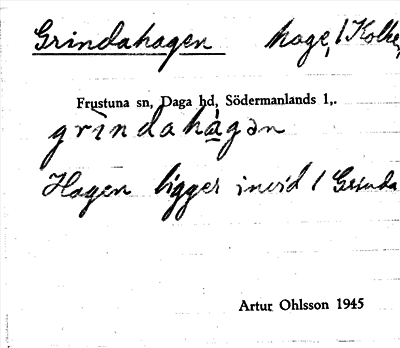 Grindahagen hage, / Kolke
Frustuna sn, Daga hd, Södermanlands l,.
grìndahágən
Hagen ligger invid / Grinda
Artur Ohlsson 1945